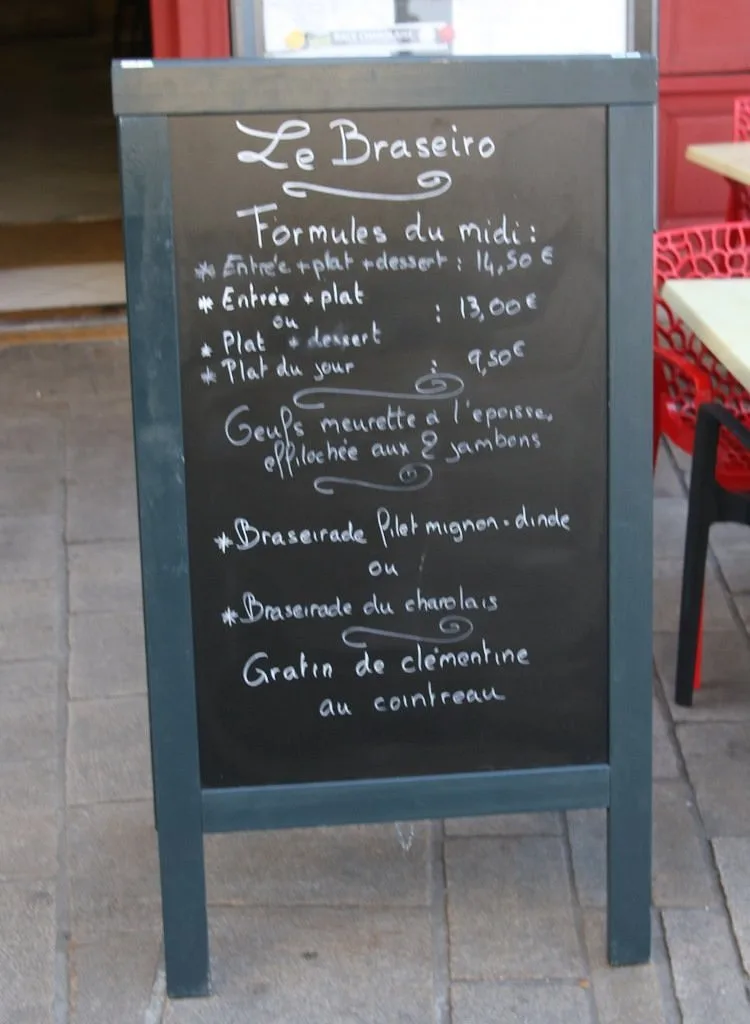 Le Braseiro
Formules du midi :
* Entrée + plat + dessert : 14,50 €
* Entrée + plat
ou : 13,00 €
* Plat + dessert
* Plat du jour : 9,50 €
Oeufs meurette à l'epoisse,
effilochée aux 2 jambons
* Braseirade filet mignon - dinde
ou
* Braseirade du charolais
Gratin de clémentine
au cointreau